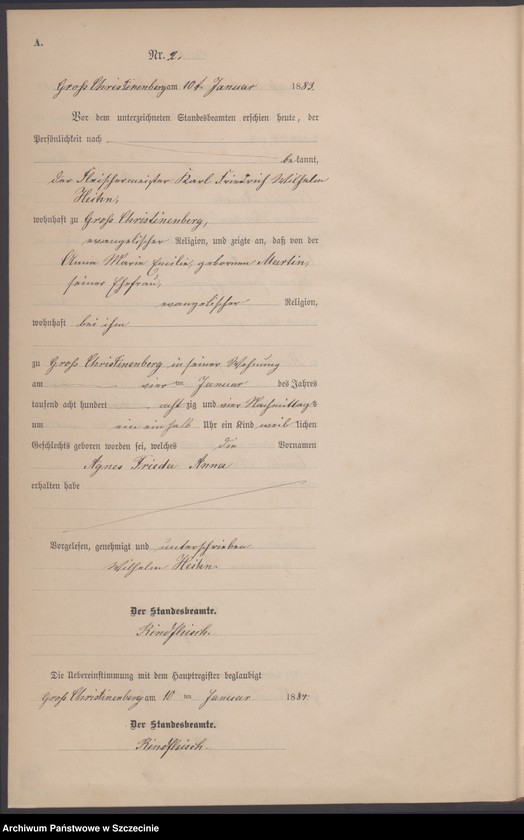 A.
Nr. 2.
Groß Christinenberg am 10t Januar 1884.
Vor dem unterzeichneten Standesbeamten erschien heute, der
Persönlichkeit nach
bekannt,
der Fleischermeister Karl Friedrich Wilhelm
Hehn,
wohnhaft zu Groß Christinenberg,
evangelischer Religion, und zeigte an, daß von der
Anna Marie Emilie, geborenen Martin,
seiner Ehefrau,
evangelischer Religion,
wohnhaft bei ihm
zu Groß Christinenberg in seiner Wohnung
am vier ten Januar des Jahres
tausend acht hundert acht zig und vier Nachmittags
um ein ein halb Uhr ein Kind weiblichen
Geschlechts geboren worden sei, welches die Vornamen
Agnes Frieda Anna
erhalten habe
Vorgelesen, genehmigt und unterschrieben
Wilhelm Hehn.
Der Standesbeamte.
Rindfleisch.
Die Uebereinstimmung mit dem Hauptregister beglaubigt
Groß Christinenberg am 10 ten Januar 1884.
Der Standesbeamte.
Rindfleisch.
Archiwum Państwowe w Szczecinie